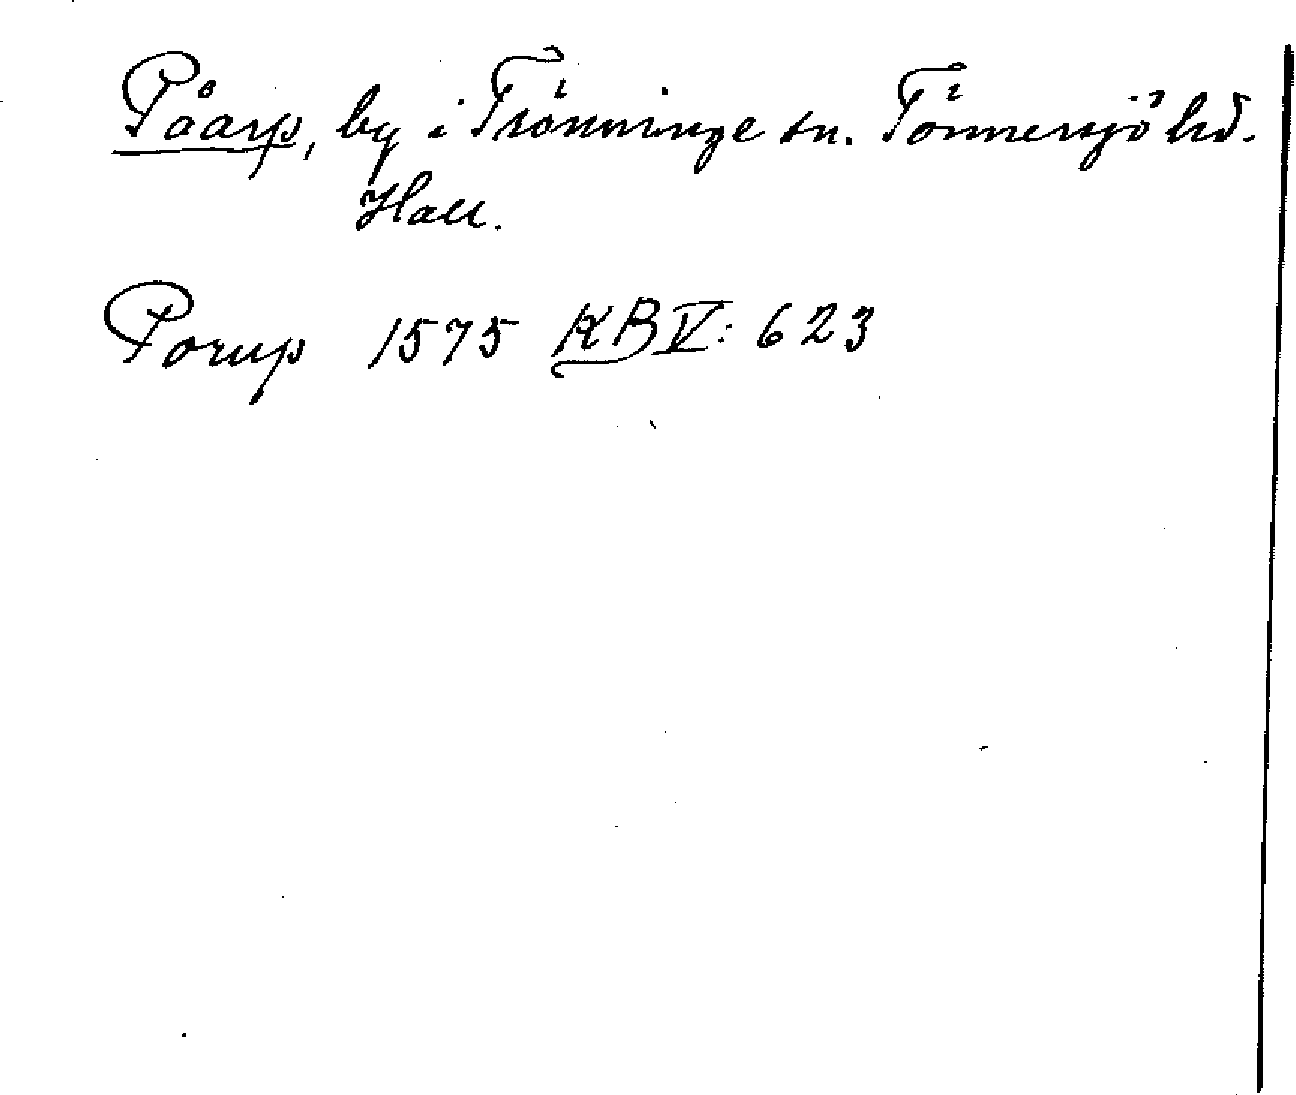 Påarp, by i Trönninge sn. Tönnersjö hd.
Hall.
Porup 1575 KB V: 623